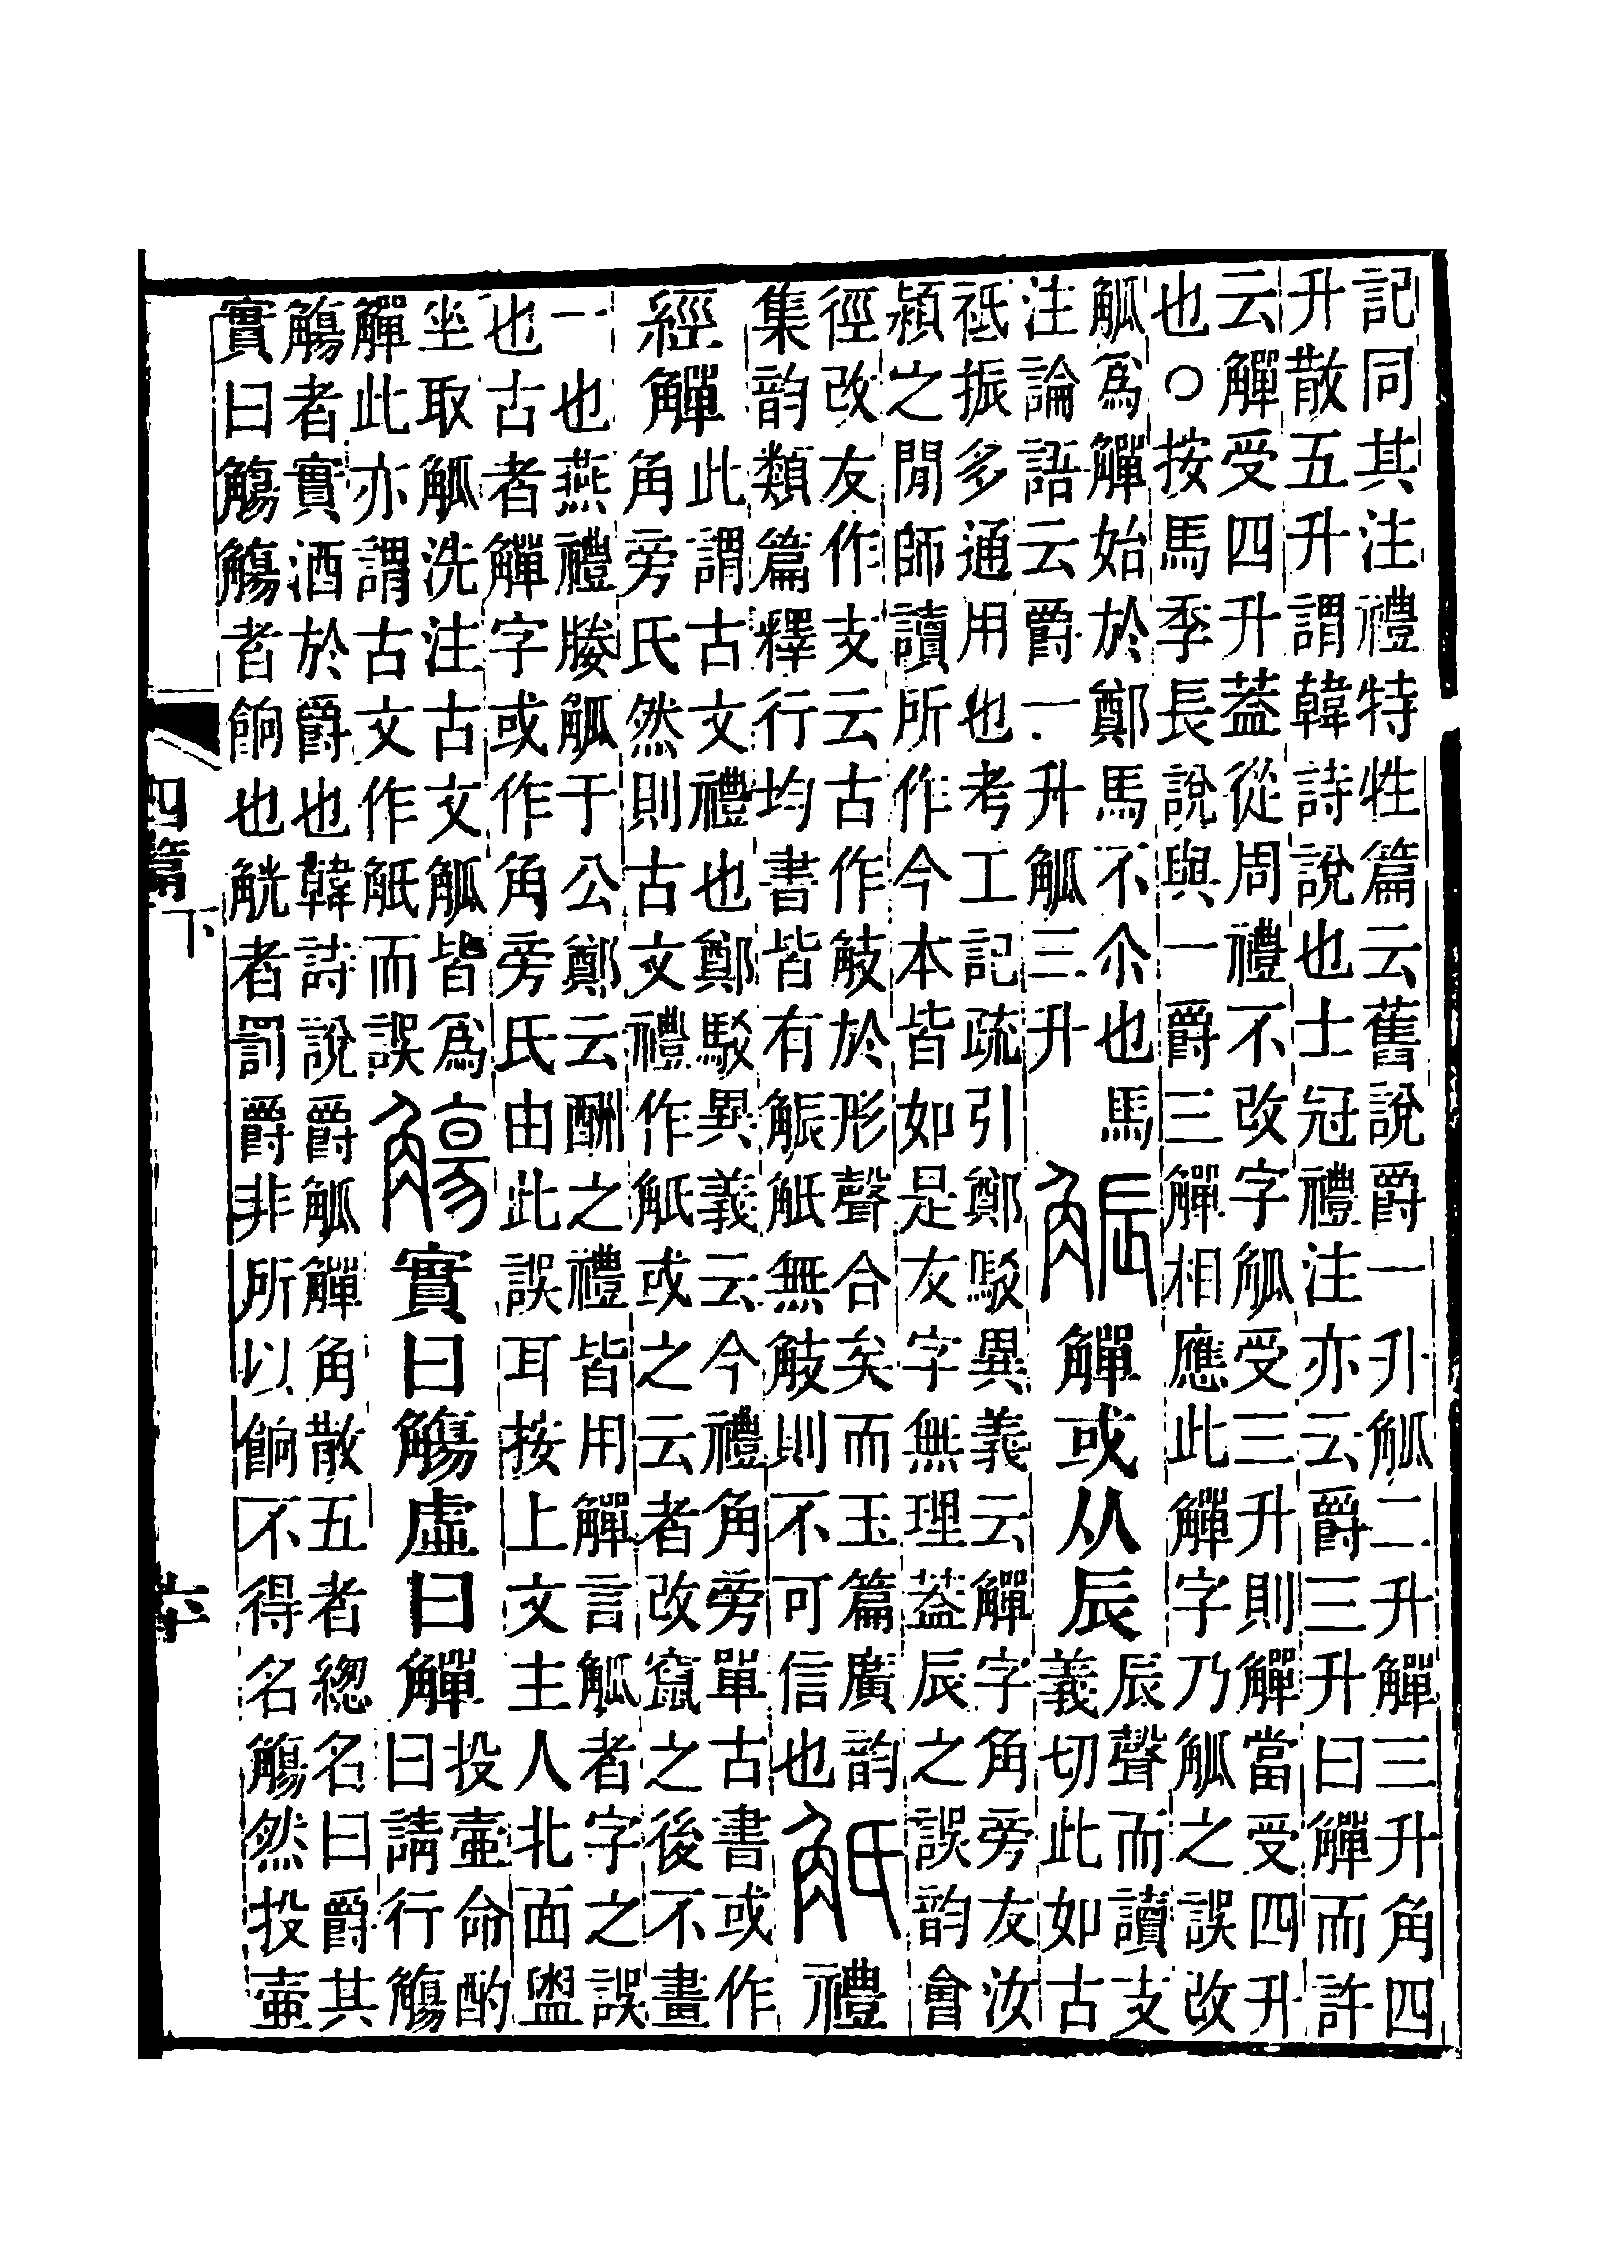 記同其注禮特牲篇云舊說爵一升觚二升觶三升角四
升散五升謂韓詩說也士冠禮注亦云爵三升曰觶而許
云觶受四升蓋從周禮不改字觚受三升則觶當受四升
也○按馬季長說與一爵三觶相應此觶字乃觚之誤改
觚爲觶始於鄭馬不尒也馬
注論語云爵一升觚三升
䚨觶或从辰
辰聲而讀支
義切此如古
祗振多通用也考工記疏引鄭駁異義云觶字角旁友汝
潁之閒師讀所作今本皆如是友字無理蓋辰之誤韵會
徑改友作支云古作於形聲合矣而玉篇廣韵
集韵類篇釋行均書皆有䚨觗無則不可信也
觗禮
經觶
此謂古文禮也鄭駁異義云今禮角旁單古書或作
角旁氏然則古文禮作觗或之云者改竄之後不畫
一也燕禮媵觚于公鄭云酬之禮皆用觶言觚者字之誤
也古者觶字或作角旁氏由此誤耳按上文主人北面盥
坐取觚洗注古文觚皆爲
觶此亦謂古文作觗而誤
觴實曰觴虛曰觶
投壺命酌
曰請行觴
觴者實酒於爵也韓詩說爵觚觶角散五者緫名曰爵其
實曰觴觴者餉也觥者罰爵非所以餉不得名觴然投壺
四篇下
六十